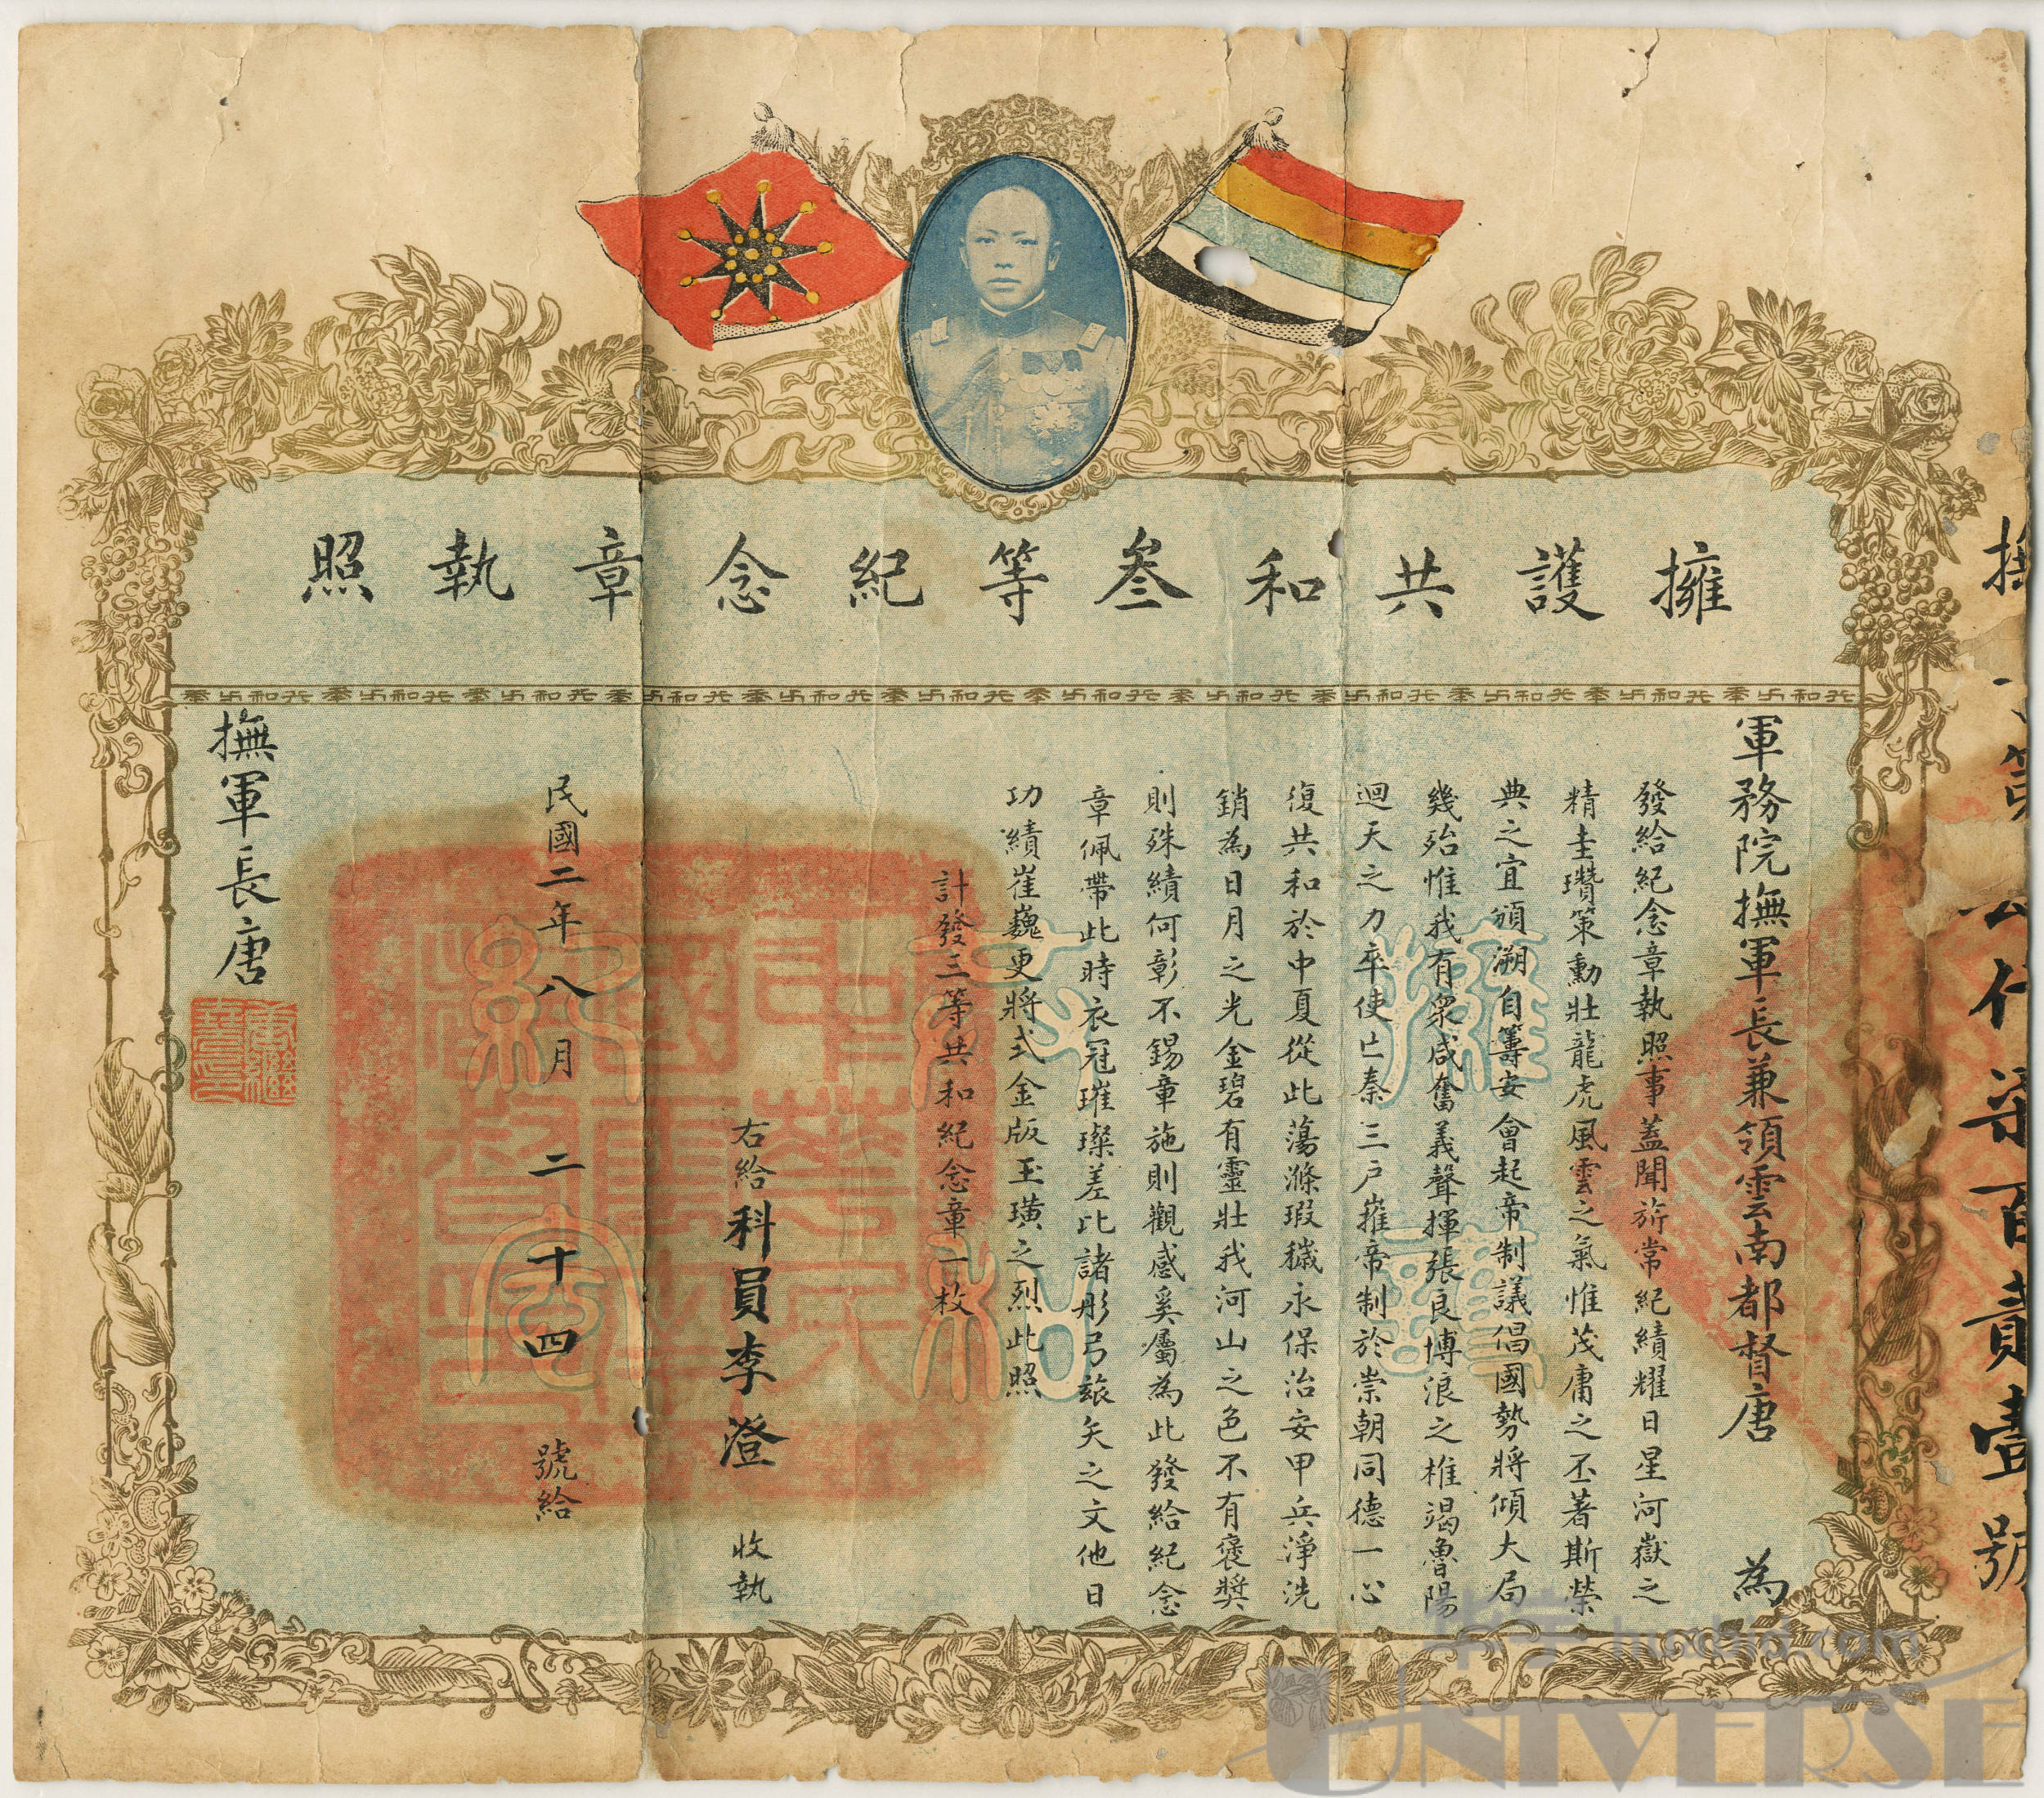 擁護共和叁等紀念章執照
軍務院撫軍長兼領雲南都督唐 為
發給紀念章執照事蓋聞旂常紀績耀日星河嶽之
精圭瓚策勳壯龍虎風雲之氣惟茂庸之丕著斯榮
典之宜頒溯自籌安會起帝制議倡國勢將傾大局
幾殆惟我有衆咸奮義聲揮張良博浪之椎竭魯陽
迴天之力卒使亡秦三戶摧帝制於崇朝同德一心
復共和於中夏從此蕩滌瑕穢永保治安甲兵淨洗
銷為日月之光金碧有靈壯我河山之色不有褒奬
則殊績何彰不錫章施則觀感奚屬為此發給紀念
章佩帶此時衣冠璀璨差比諸彤弓玈矢之文他日
功績崔巍更將式金版玉璜之烈此照
計發三等共和紀念章一枚
右給科員李澄 收執
民國二年八月二十四 號給
撫軍長唐
唐繼堯印
擁護共和紀念
柒百貳壹號
华宇 huabid.com
UNIVERSE